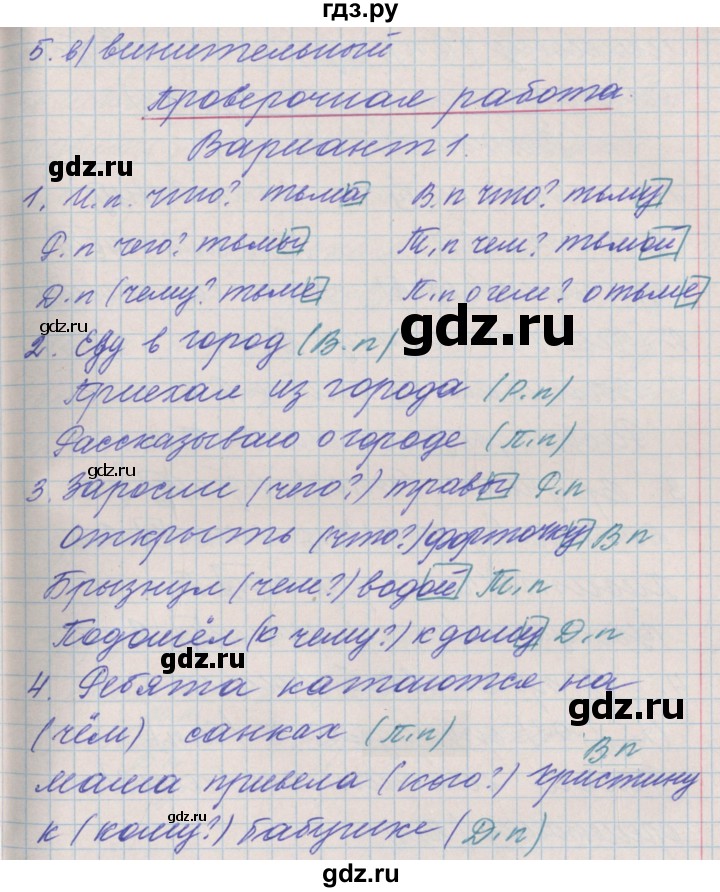 гдз.ру
5. в) винительный
Проверочная работа.
Вариант 1.
1. И.п. что? тьма В.п что? тьму
Р.п чего? тьмы Т.п чем? тьмой
Д.п (чему? тьме П.п о чем? о тьме
2. Еду в город (В.п)
Приехал из города (Р.п)
Рассказываю о городе (П.п)
3. Заросли (чего?) травы Р.п
открыть (что?) форточку В.п
Брызнул (чем?) водой Т.п
Подошёл (к чему?) к дому Д.п
4. Ребята катаются на
(чём) санках (П.п)
В п
мама привела (кого?) Христину
к (кому?) бабушке (Д.п)
gdz.ru
gdz.ru
gdz.ru
gdz.ru
gdz.ru
gdz.ru
gdz.ru
gdz.ru
gdz.ru